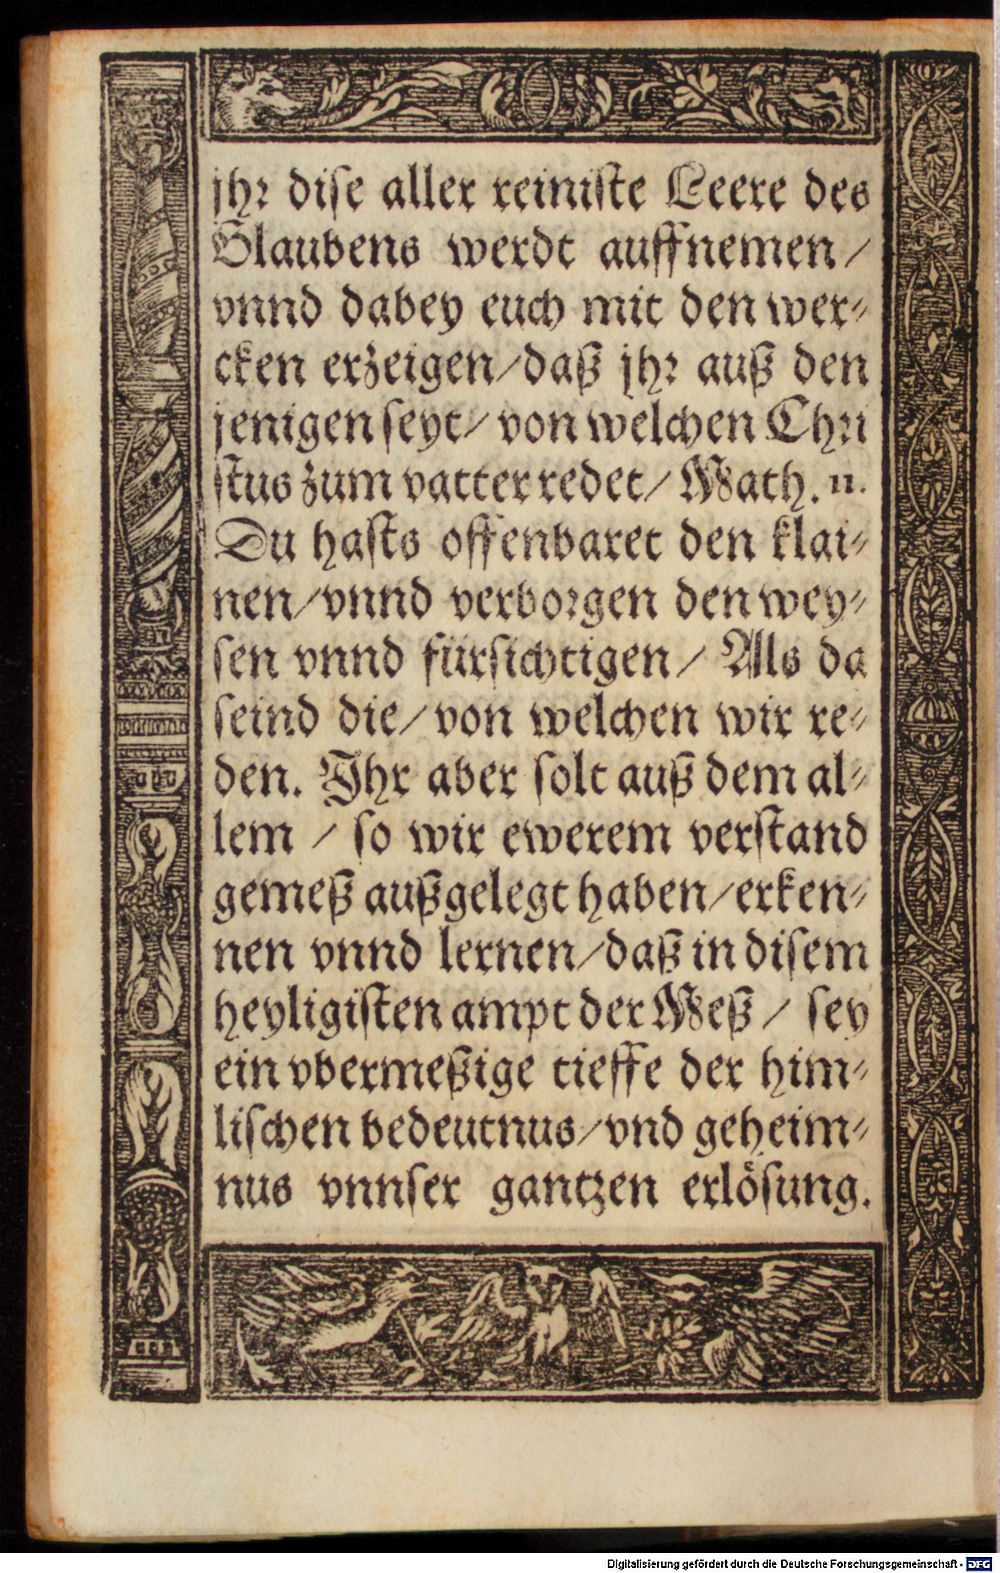 jhr dise aller reiniste Leere des
Glaubens werdt auffnemen/
vnnd dabey euch mit den wer⸗
cken erzeigen/daß jhr auß den
jenigen seyt/ von welchen Chri
stus zum vatter redet/ Math. 11.
Du hasts offenbaret den klai⸗
nen/vnnd verborgen den wey⸗
sen vnnd fürsichtigen/ Als da
seind die/ von welchen wir re⸗
den. Ihr aber solt auß dem al⸗
lem / so wir ewerem verstand
gemeß außgelegt haben/erken⸗
nen vnnd lernen/daß in disem
heyligisten ampt der Meß / sey
ein vbermeßige tieffe der him⸗
lischen bedeutnus/vnd geheim⸗
nus vnnser gantzen erlösung.
Digitalisierung gefördert durch die Deutsche Forschungsgemeinschaft - DFG